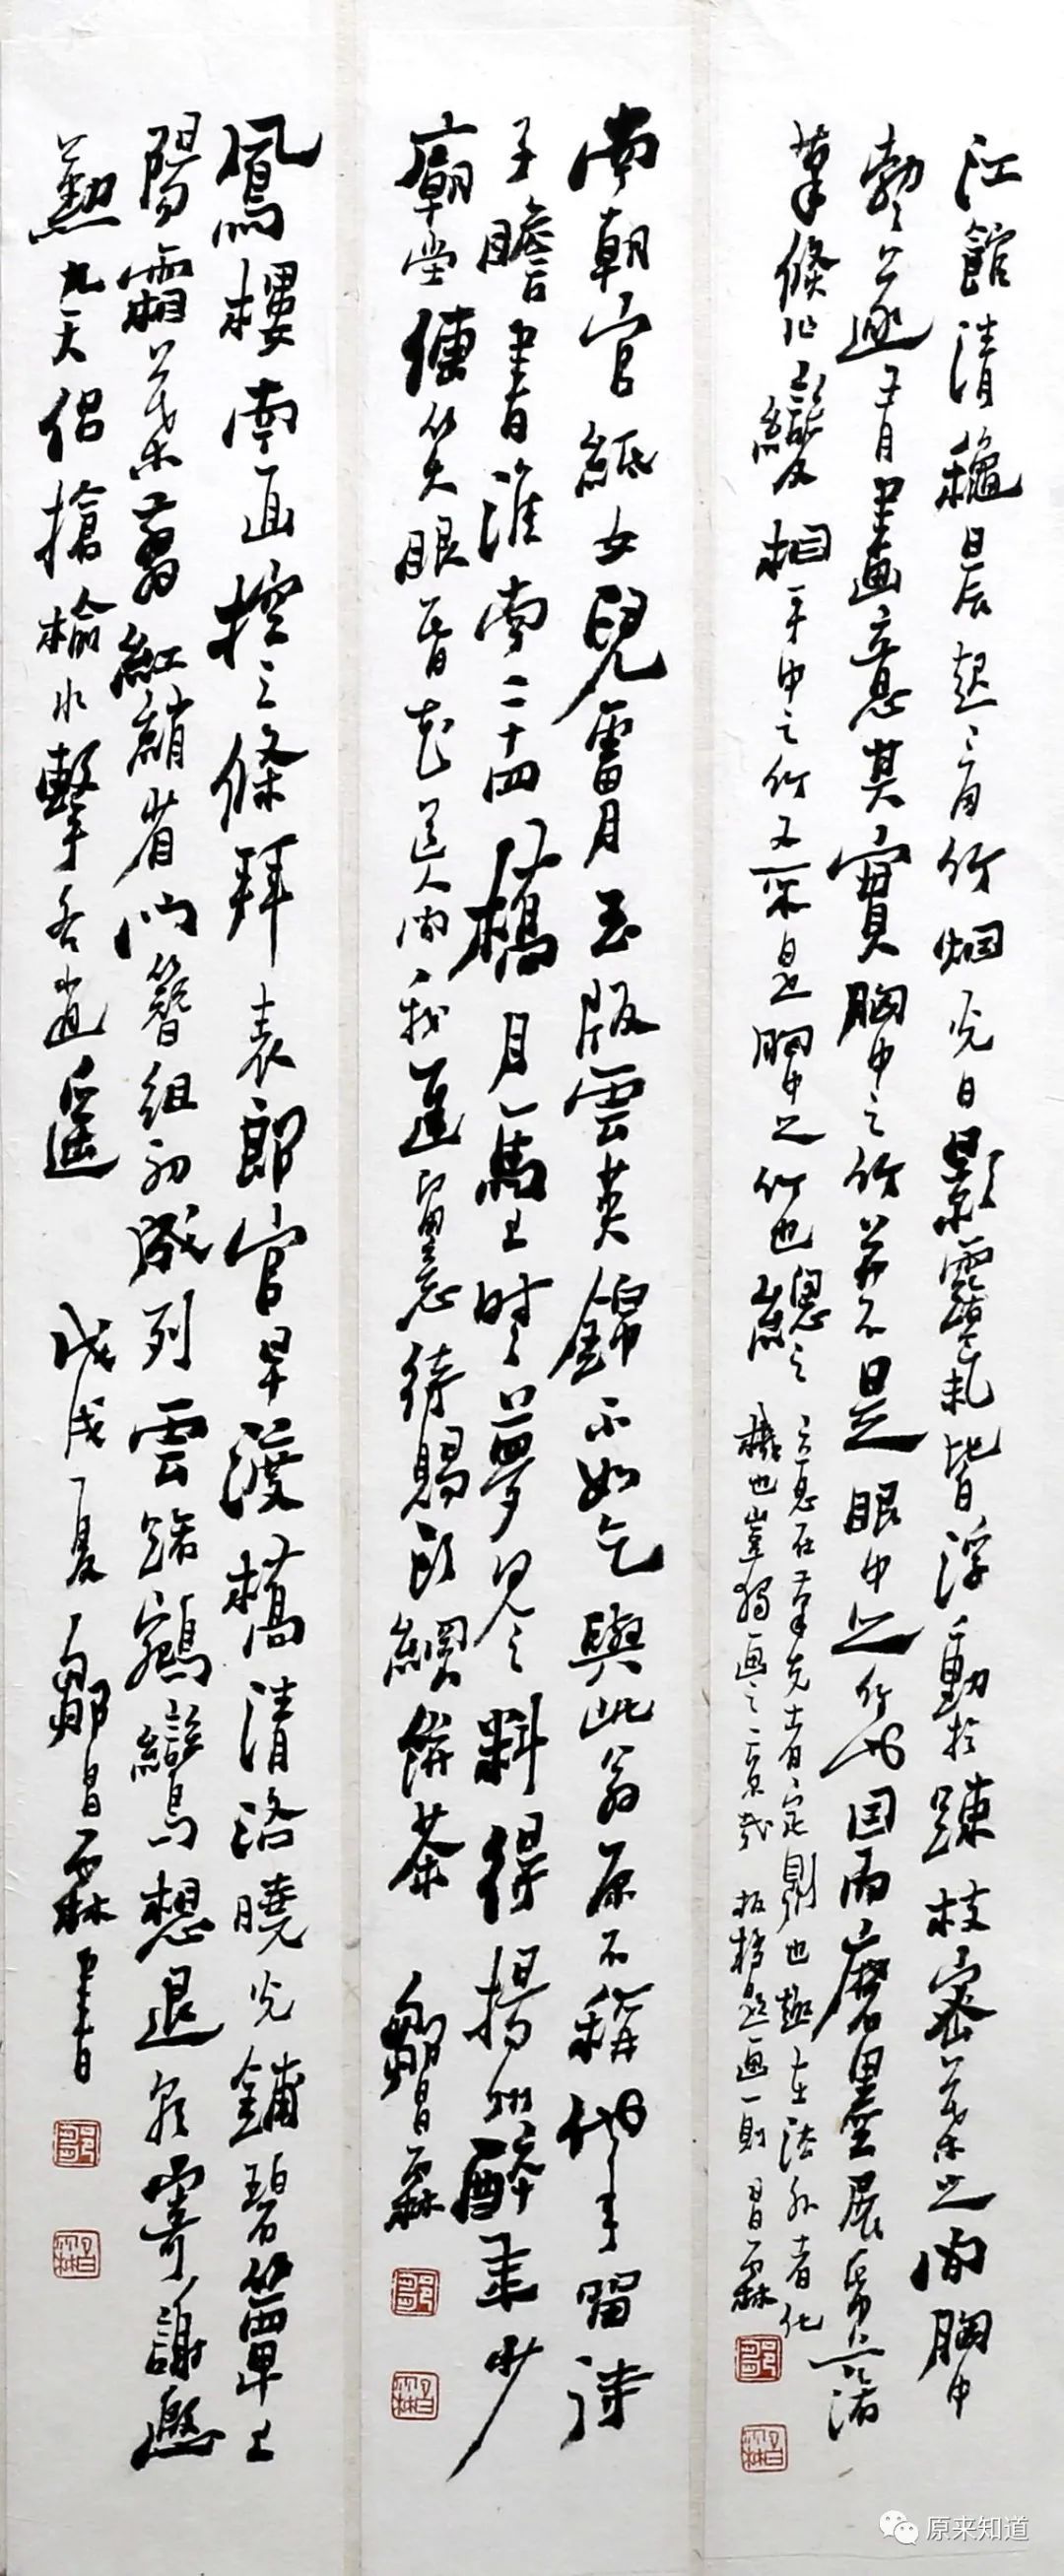 江館清穐晨起看竹烟光日影露氣皆浮動於疎枝密葉之間胸中
勃勃遂有畫意其實胸中之竹并不是眼中之竹也因而磨墨展紙落
筆倏作變相手中之竹又不是胸中之竹也總之
意在筆先者定則也趣在法外者化
機也豈獨画云乎哉 板橋題画一則 昌霖
南朝官紙女兒膚玉版雲英錦不如乞與此翁原不稱他年留待
子瞻書淮南二十四橋月馬上時時夢見之料得揚州醉年少
廟堂傳笑眼昏花 待賜頭綱餅茶 鄒昌霖
鳳樓南面控三條拜表郎官早渡橋清洛曉光鋪碧簟上
陽霜葉翦紅綃省門簪組初成列雲路鵷鸞想退朝寄謝慇
懃九天侶搶榆水擊各逍遙 戊戌夏鄒昌霖書
原来知道